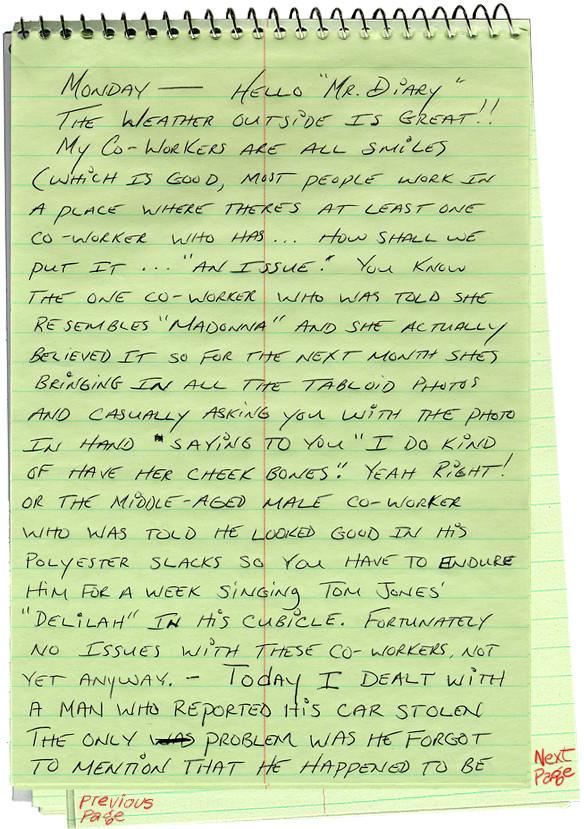 MONDAY — HELLO "MR. DIARY"
THE WEATHER OUTSIDE IS GREAT!!
MY CO-WORKERS ARE ALL SMILES
(WHICH IS GOOD, MOST PEOPLE WORK IN
A PLACE WHERE THERE'S AT LEAST ONE
CO-WORKER WHO HAS... HOW SHALL WE
PUT IT ... "AN ISSUE". YOU KNOW
THE ONE CO-WORKER WHO WAS TOLD SHE
RESEMBLES "MADONNA" AND SHE ACTUALLY
BELIEVED IT SO FOR THE NEXT MONTH SHE'S
BRINGING IN ALL THE TABLOID PHOTOS
AND CASUALLY ASKING YOU WITH THE PHOTO
IN HAND SAYING TO YOU "I DO KIND
OF HAVE HER CHEEK BONES". YEAH RIGHT!
OR THE MIDDLE-AGED MALE CO-WORKER
WHO WAS TOLD HE LOOKED GOOD IN HIS
POLYESTER SLACKS SO YOU HAVE TO ENDURE
HIM FOR A WEEK SINGING TOM JONES'
"DELILAH" IN HIS CUBICLE. FORTUNATELY
NO ISSUES WITH THESE CO-WORKERS, NOT
YET ANYWAY. - TODAY I DEALT WITH
A MAN WHO REPORTED HIS CAR STOLEN
THE ONLY WAS PROBLEM WAS HE FORGOT
TO MENTION THAT HE HAPPENED TO BE
Next
Page
Previous
Page